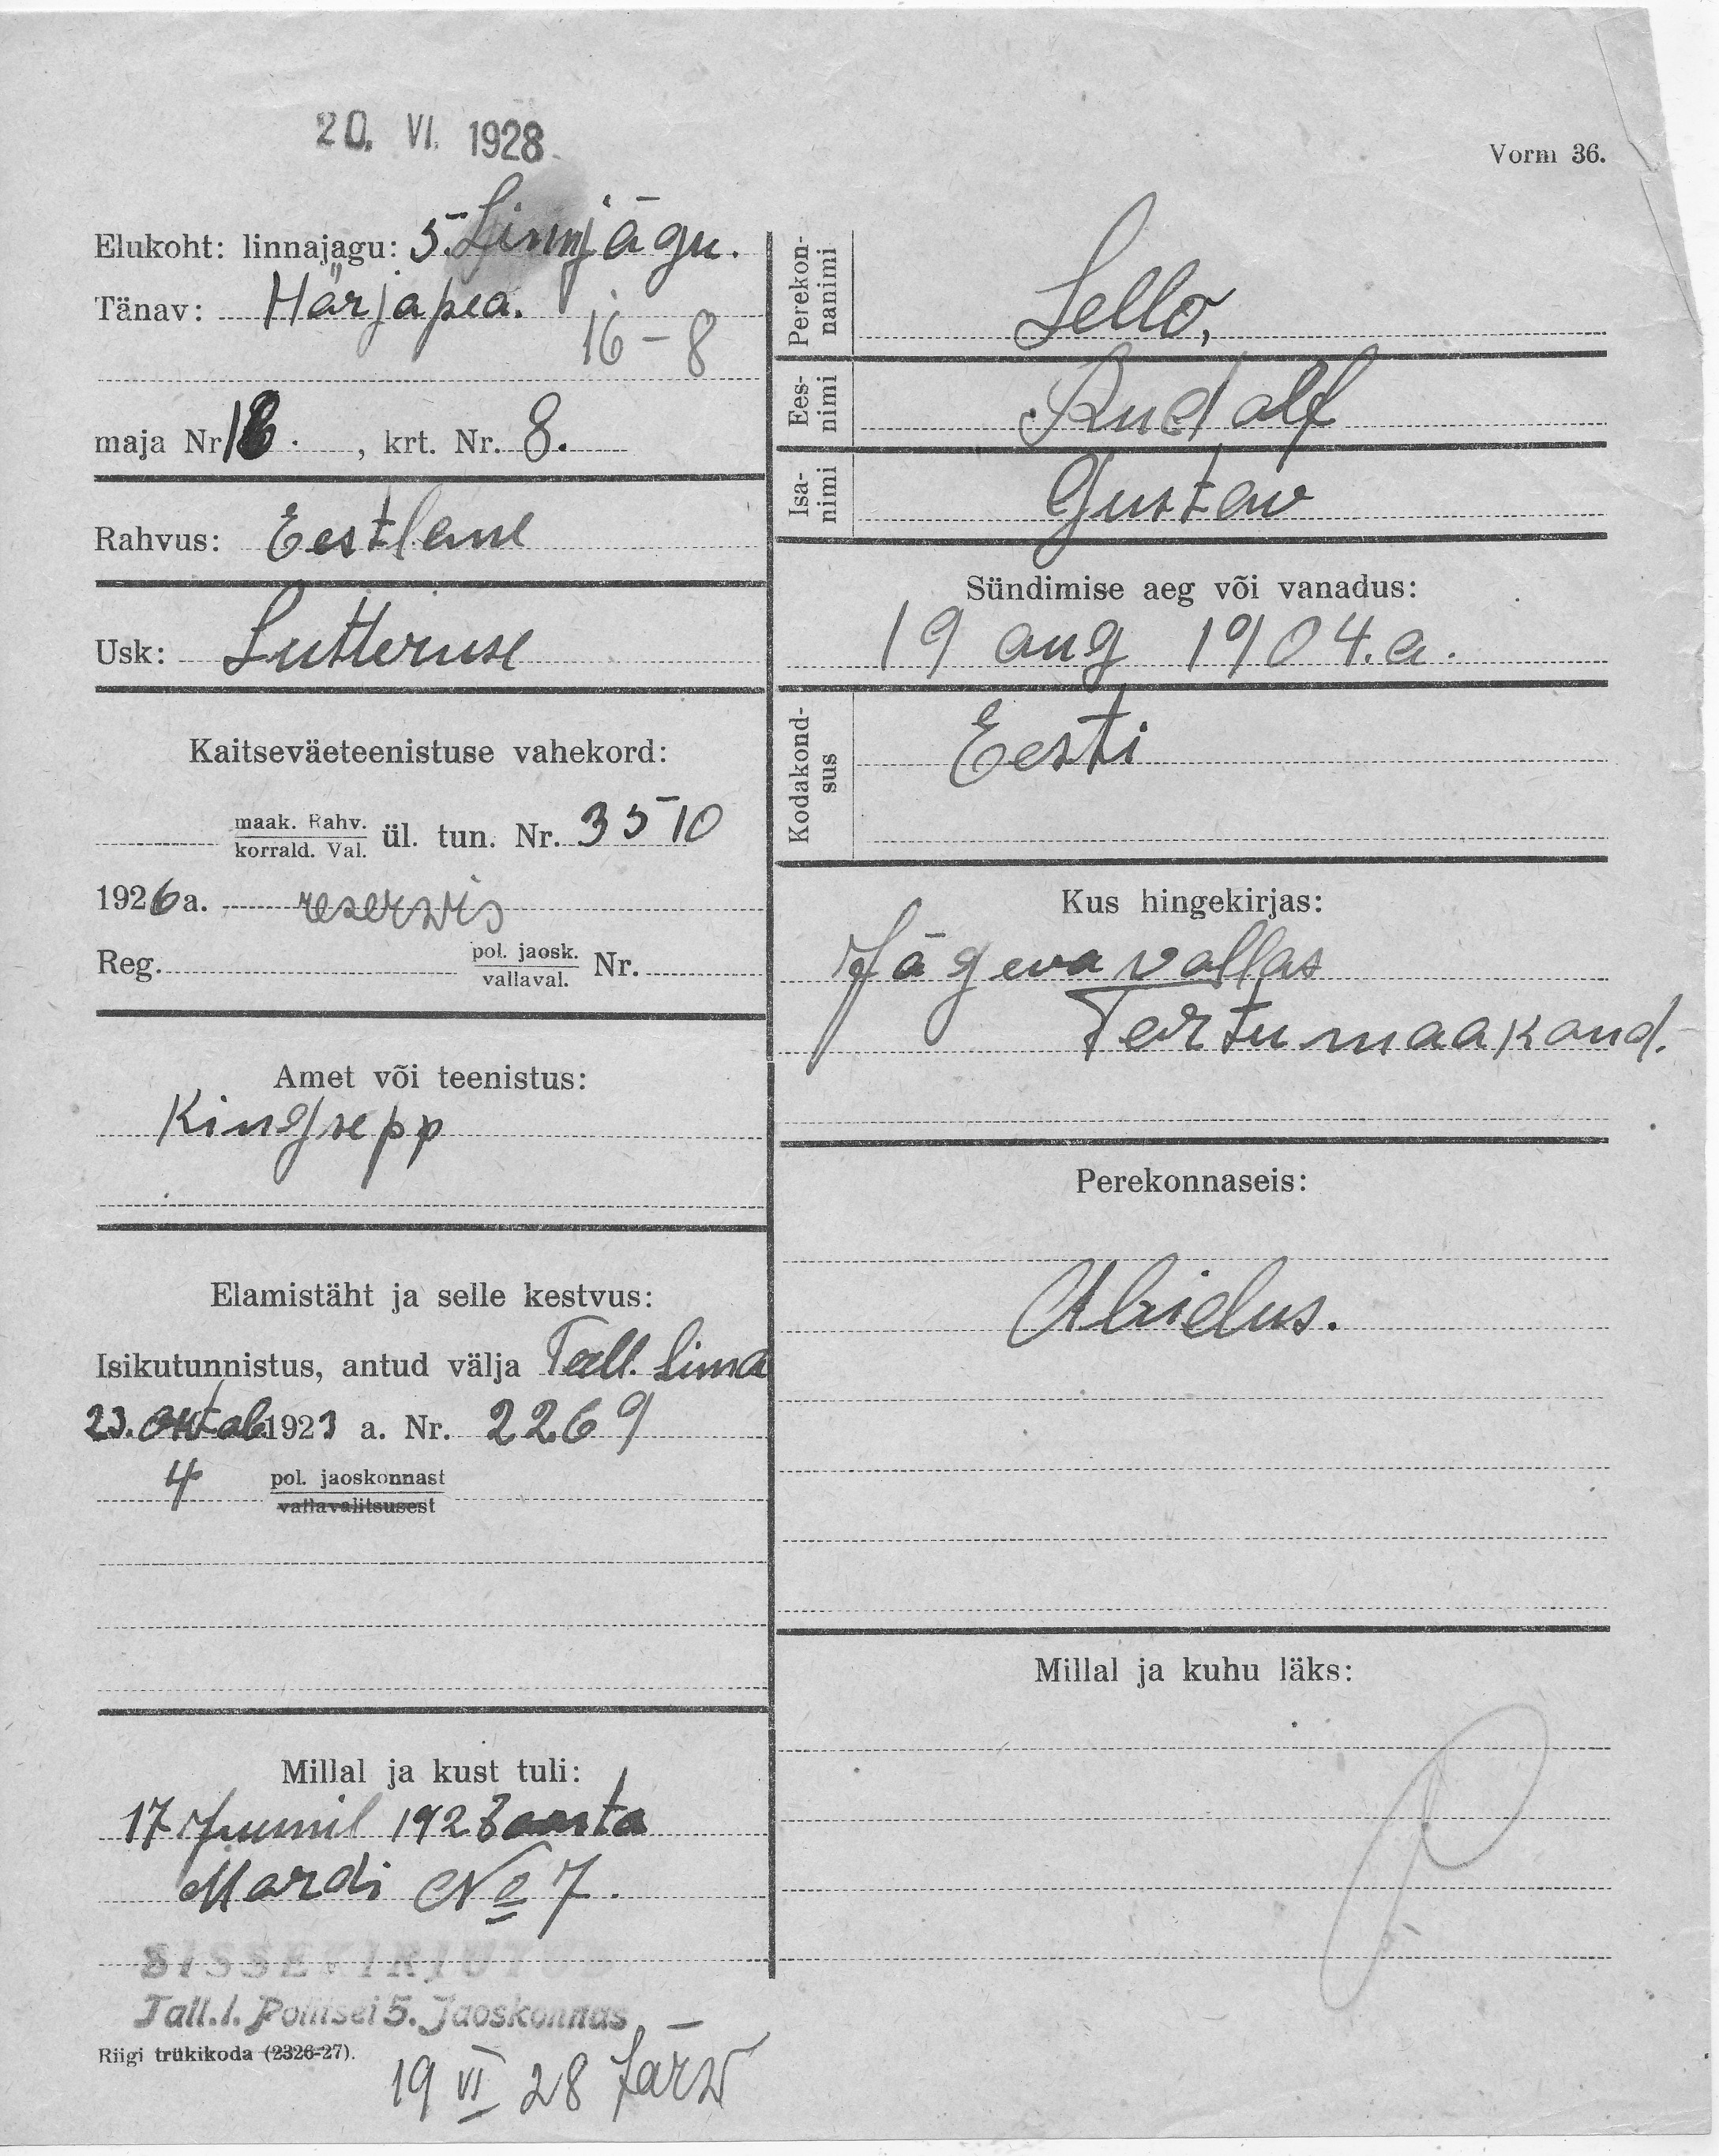 20. VI. 1928
Vorm 36.
Elukoht: linnajagu: 5. Linnjägu.
Tänav: Härjapea.
16-8
maja Nr 16. , krt. Nr. 8.
Rahvus: Eestlane
Usk: Lutteruse
Kaitseväeteenistuse vahekord:
maak. Rahv.
korrald. Val. ül. tun. Nr. 3510
1926 a. reserwis
Reg. pol. jaosk.
vallaval. Nr.
Amet või teenistus:
Kingsepp
Elamistäht ja selle kestvus:
Isikutunnistus, antud välja Tall. lima
23. Oktob 1923 a. Nr. 2269
4 pol. jaoskonnast
vallavalitsusest
Millal ja kust tuli:
17 Juunil 1928 aasta
Mardi № 7.
SISSEKIRJUTUD
Tall. l. Politsei 5. Jaoskonnas
Riigi trükikoda (2326-27).
19 VI 28 Järw
Perekon-
nanimi
Lello,
Ees-
nimi
Rudolf
Isa-
nimi
Gustav
Sündimise aeg või vanadus:
19 aug 1904.a.
Kodakond-
sus
Eesti
Kus hingekirjas:
Jägeva vallas
Tartu maakond.
Perekonnaseis:
Abielus.
Millal ja kuhu läks: